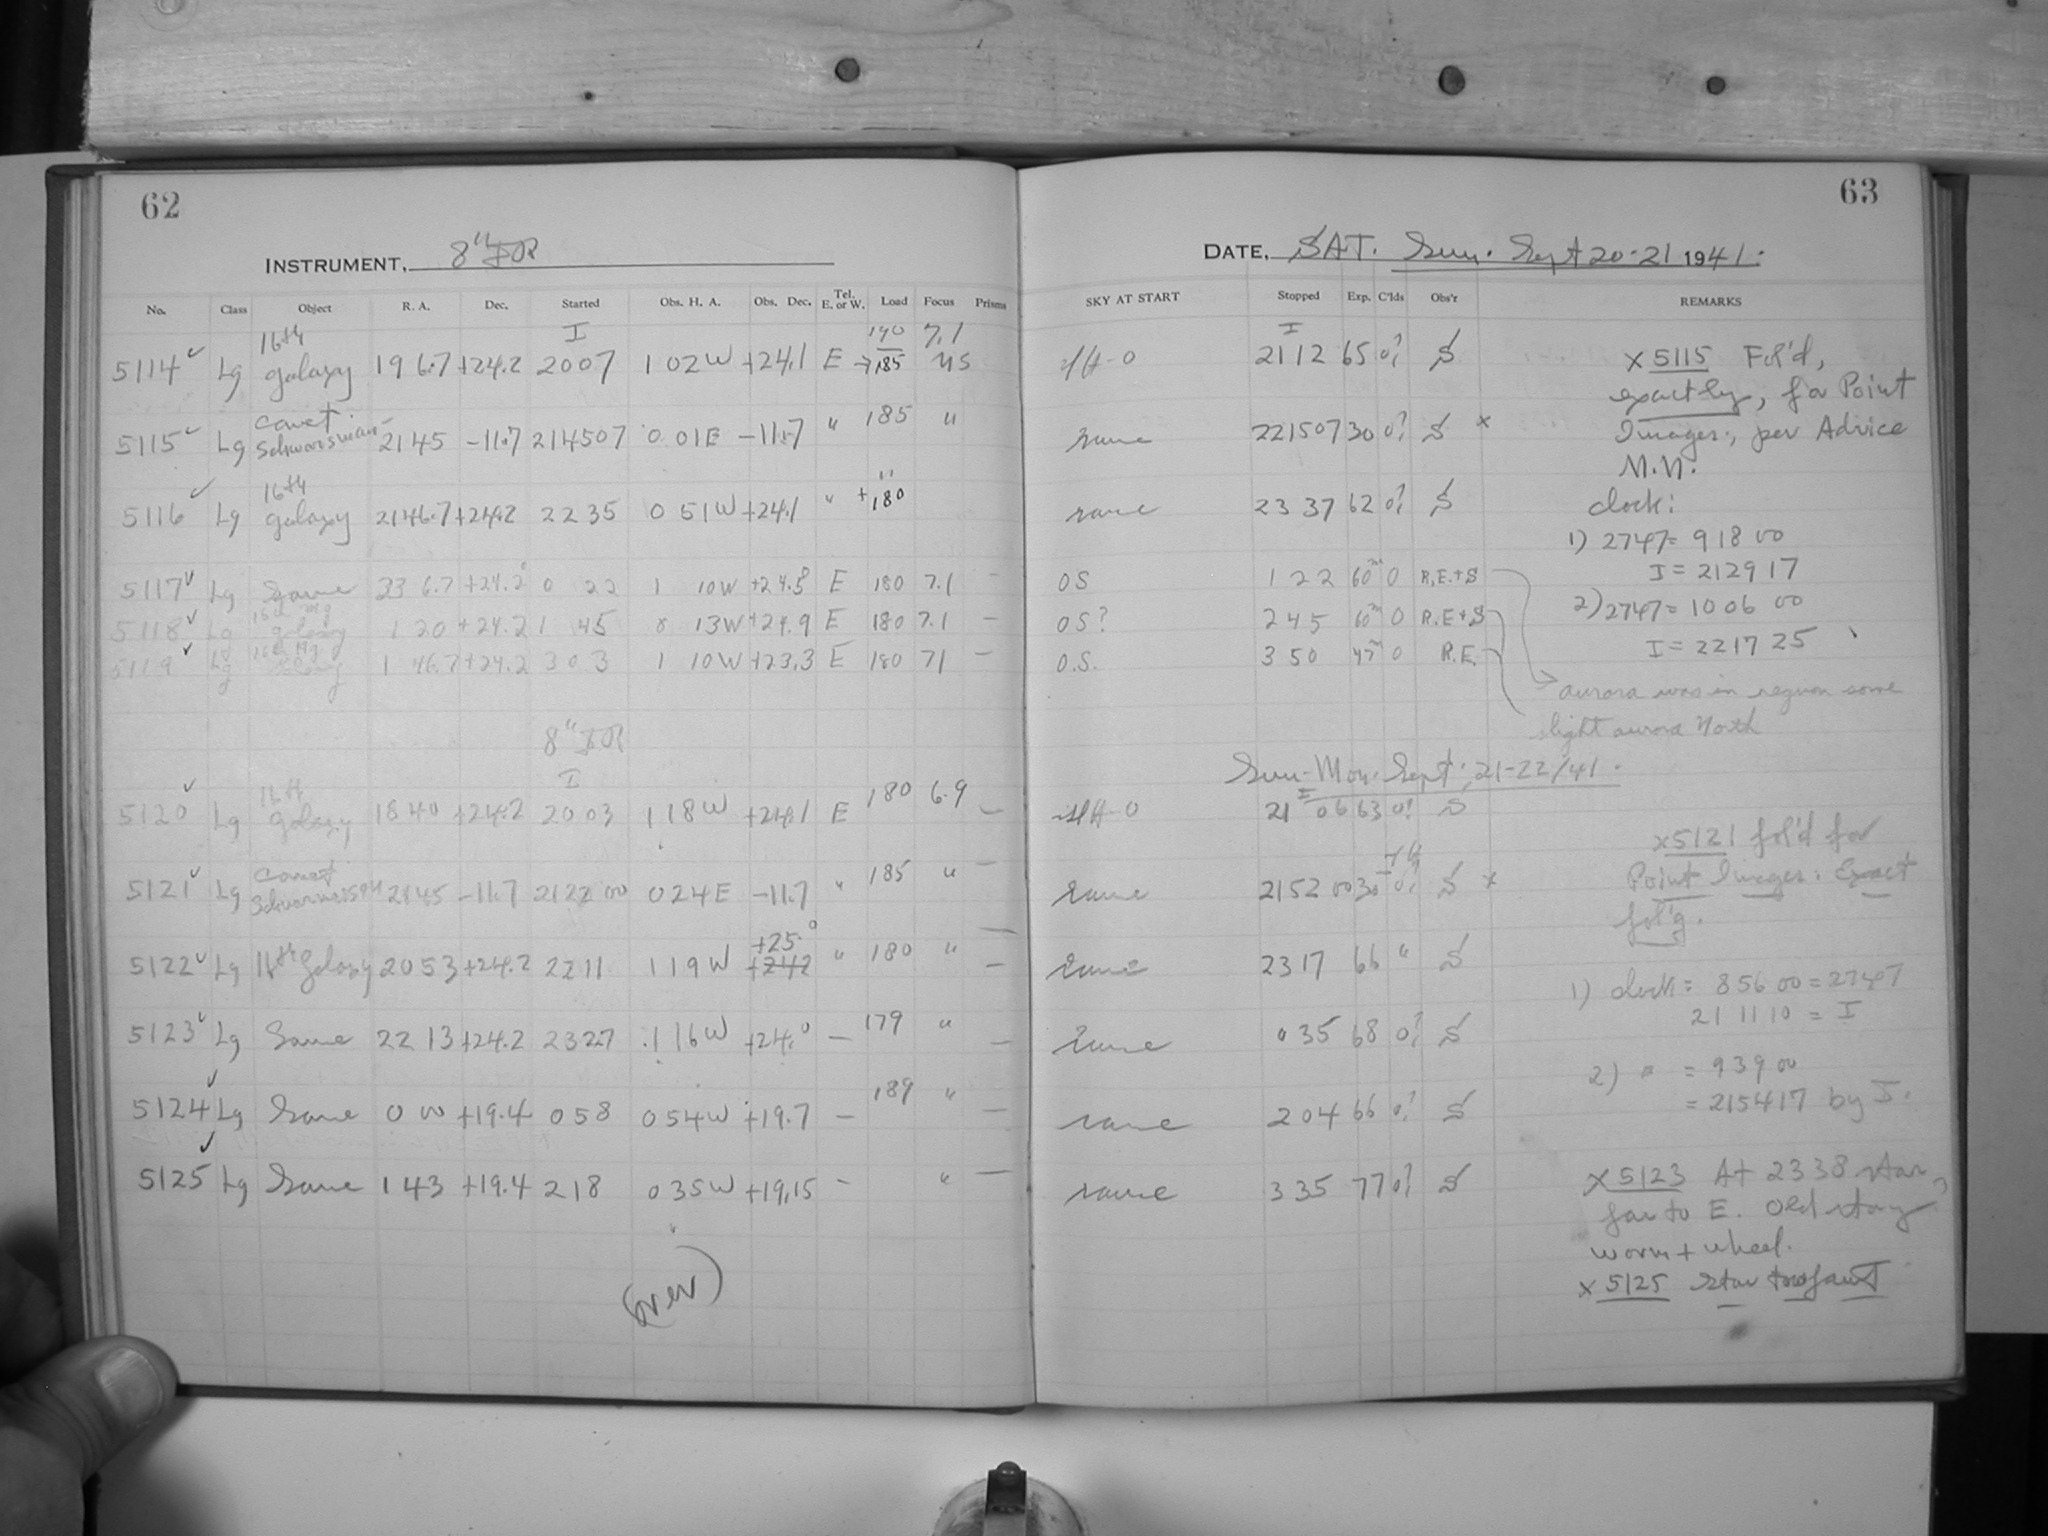 62
INSTRUMENT, 8" IR
No. Class Object R. A. Dec. Started Obs. H. A. Obs. Dec. Tel. E. or W. Load Focus Prisms
I
5114 ✓ Lg 16th galaxy 19 6.7 +24.2 2007 1 02W +24.1 E 190 → 185 7.1
5115 ✓ Lg Comet 2145 -11.7 214507 0 01E -11.7 " 185 "
5116 ✓ Lg 16th galaxy 2146.7 +24.2 2235 0 51W +24.1 " + 180 "
5117 ✓ Lg Same 23 6.7 +24.2° 0 22 1 10W +24.5 E 180 7.1 —
5118 ✓ Lg 16th Mg galaxy 1 20 +24.2 1 45 0 13W +24.9 E 180 7.1 —
5119 ✓ Lg 16th Mg galaxy 1 46.7 +24.2 3 03 1 10W +23.3 E 180 71 —
8" IR
I
5120 ✓ Lg 16th galaxy 1840 +24.2 2003 1 18W +24.1 E 180 6.9 —
5121 ✓ Lg Comet 2145 -11.7 2122 00 0 24E -11.7 " 185 " —
5122 ✓ Lg 16th galaxy 2053 +24.2 2211 1 19W +25.° +24.2 " 180 " —
5123 ✓ Lg Same 22 13 +24.2 2327 1 16W +24.0 — 179 " —
5124 ✓ Lg Same 0 00 +19.4 0 58 0 54W +19.7 — 189 " —
5125 ✓ Lg Same 1 43 +19.4 2 18 0 35W +19.15 — " —
(over)
63
DATE, SAT. Sun. Sept 20-21 1941.
SKY AT START Stopped Exp. C'lds Obs'r REMARKS
I
H-0 2112 65 0? S
same 221507 30 0? S x
same 2337 62 0? S
OS 1 22 60m 0 R.E.+S
OS? 2 45 60m 0 R.E+S
O.S. 3 50 47m 0 R.E.
x 5115 Fol'd,
exactly, for Point
Images, per Advice
M.N.
clock:
1) 2747 = 918 00
I = 212917
2) 2747 = 1006 00
I = 2217 25
aurora was in region some
light aurora North
Sun-Mon. Sept. 21-22/41.
I
H-0 21 06 63 0? S
same 2152 00 30 0? S x
same 2317 66 " S
same 0 35 68 0? S
same 2 04 66 0? S
same 3 35 77 0? S
x 5121 fol'd for
Point Images. Exact
fol'g.
1) clock = 856 00 = 2747
21 11 10 = I
2) " = 939 00
= 215417 by I.
x 5123 At 2338 star
far to E. Old story
worm + wheel.
x 5125 Star too faint